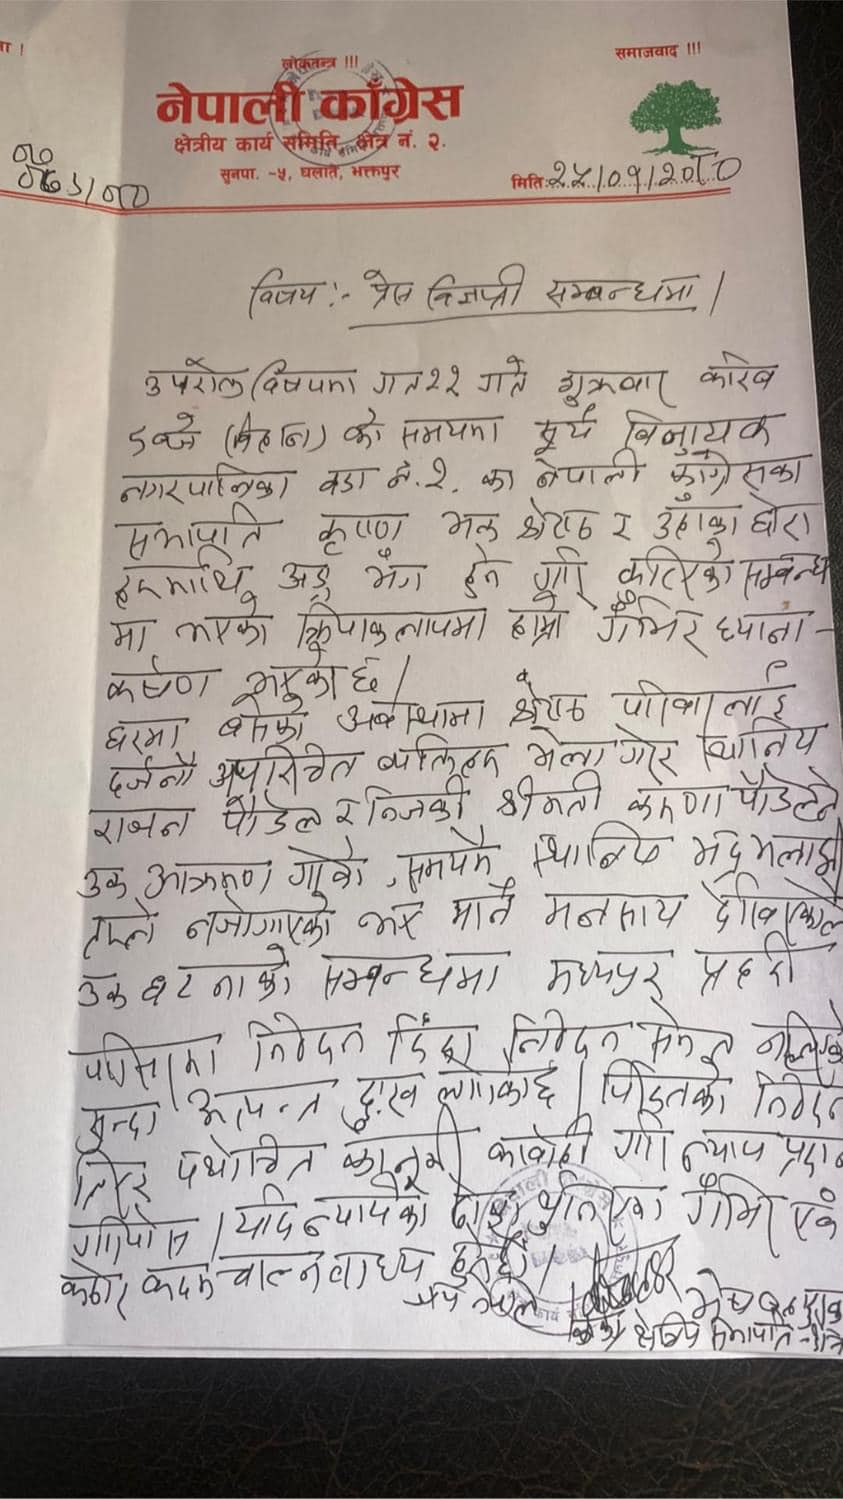 लोकतन्त्र !!!
समाजवाद !!!
नेपाली काँग्रेस
क्षेत्रीय कार्य समिति, क्षेत्र नं. २.
सुनपा. -५, घलाते, भक्तपुर
मिति: २५/०१/२०८०
विषय :- प्रेस विज्ञप्ती सम्बन्धमा |
उपरोक्त विषयमा गत २२ गते शुक्रवार करिब
५ बजे (बिहान) को समयमा सूर्य विनायक
नगरपालिका वडा नं. २. का नेपाली काँग्रेसका
सभापति कृष्ण भक्त श्रेष्ठ र उहाका छोरा
हरुमाथि अङ्ग भंग हुने गरि कुटिएको सम्बन्ध
मा भएको क्रियाकलापमा हाम्रो गँभिर ध्याना-
कर्षण भएको छ |
घरमा बसेको अवस्थामा श्रेष्ठ परिवारलाई
दर्जनौ अपरिचित व्यक्तिहरु भेला गरि स्थानिय
राजन पौडेल र निजकी श्रीमती करुणा पौडेलले
उक्त आक्रमण गरेको, समयमै स्थानिय भद्र भलादमी
हरुले नजोगाएको भए मार्ने मनसाय देखिएकोले
उक्त घटनाको सम्बन्धमा मध्यपुर प्रहरी
निवेदन दिंदा निवेदन समेत नलिएको
सुन्दा अत्यन्त दुःख लागेको छ | पिडितको निवेदन
लिएर यथोचित कानूनी कार्वाही गरी न्याय प्रदान
गरियोस | यदि न्यायको गँभिर एवं
कठोर कदम चाल्न वाध्य हुनेछौ |
क्षेत्रिय सभापति -